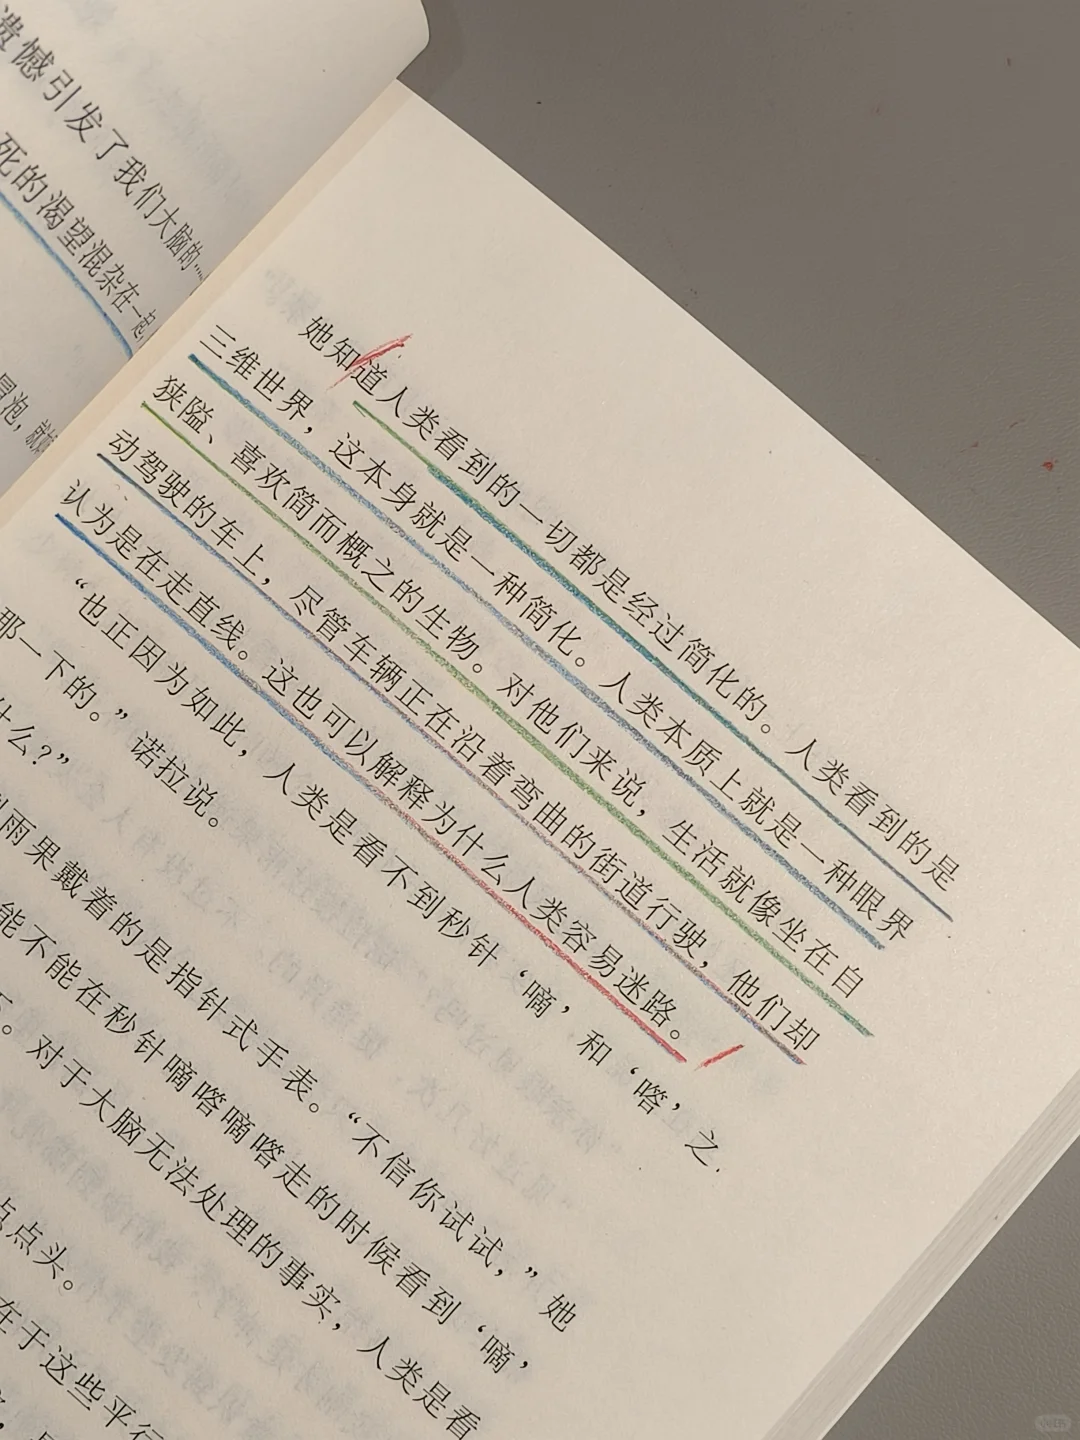 遗憾引发了我们大脑的
死的渴望混杂在一起
冒泡，就
她知道人类看到的一切都是经过简化的。人类看到的是
三维世界，这本身就是一种简化。人类本质上就是一种眼界
狭隘、喜欢简而概之的生物。对他们来说，生活就像坐在自
动驾驶的车上，尽管车辆正在沿着弯曲的街道行驶，他们却
认为是在走直线。这也可以解释为什么人类容易迷路。
“也正因为如此，人类是看不到秒针‘嘀’和‘嗒’之
那一下的。”诺拉说。
什么？”
雨果戴着的是指针式手表。“不信你试试，”她
能不能在秒针嘀嗒嘀嗒走的时候看到‘嘀’
下。对于大脑无法处理的事实，人类是看
点点头。
在于这些平行